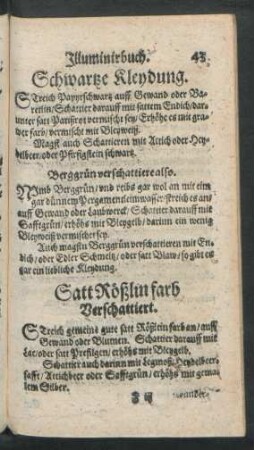 Illuminirbuch. 43
Schwartze Kleydung.
STreich Papyrschwartz auff Gewand oder Ba-
retlin/Schattier darauff mit sattem Endich/dar-
unter satt Parißrot vermischt sey/Erhöhe es mit gra-
wer farb/vermischt mit Bleyweiß.
Magst auch Schattieren mit Attich oder Hey-
delbeer/oder Pfersigstein schwartz.
Berggrün verschattiere also.
NImb Berggrün/vnd reibs gar wol an mit eim
gar dünnem Pergamenleimwasser/streich es an/
auff Gewand oder Laubwerck/Schattier darauff mit
Safftgrün/erhöhs mit Bleygelb/darinn ein wenig
Bleyweiß vermischet sey.
Auch magstu Berggrün verschattieren mit En-
dich/oder Edler Schmeltz/oder satt Blaw/so gibt es
gar ein liebliche Kleydung.
Satt Rößlin farb
Verschattiert.
STreich gemeine gute satt Rößlein farb an/auff
Gewand oder Blumen. Schattier darauff mit
oder satt Presilgen/erhöhs mit Bleygelb.
Schattier auch darinn mit Heydelbeer-
safft/Attichbeer oder Safftgrün/erhöhs mit gema-
lem Silber.